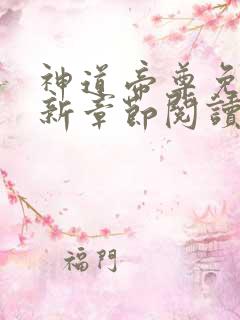 神道帝尊免
新章節閱讀
福門